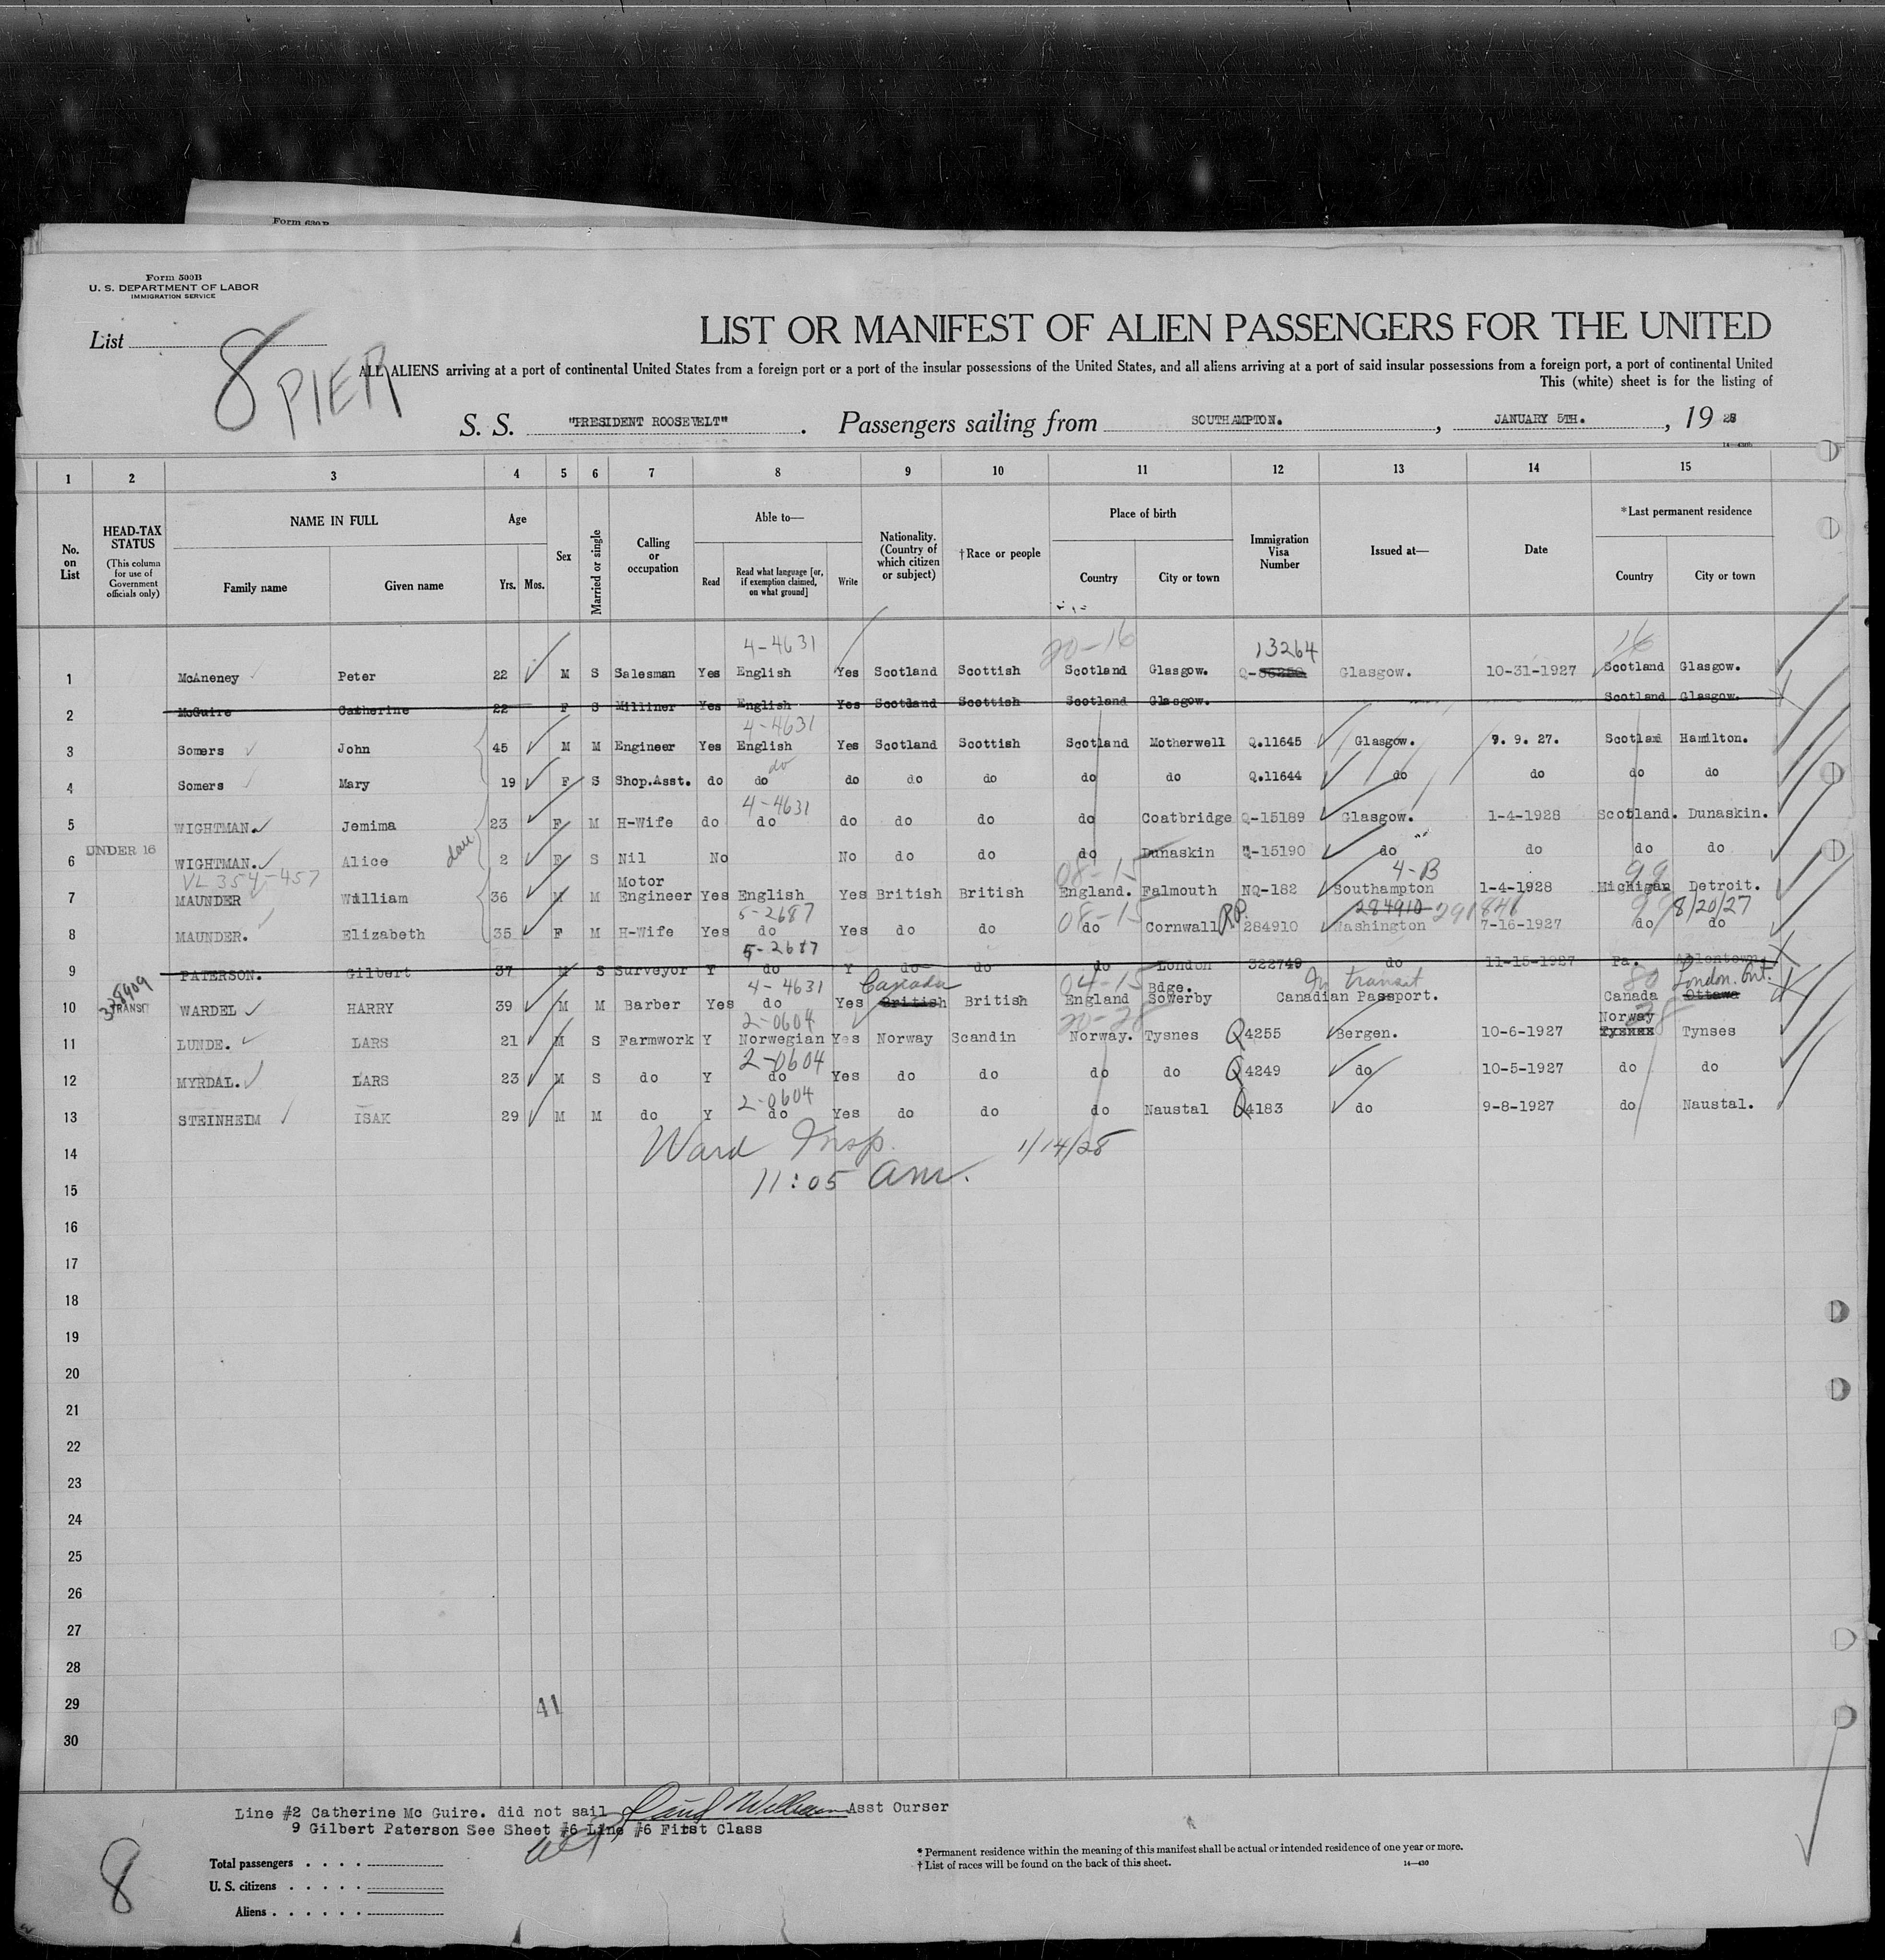 Form 630B
Form 500B
U. S. DEPARTMENT OF LABOR
IMMIGRATION SERVICE
List
8 PIER
LIST OR MANIFEST OF ALIEN PASSENGERS FOR THE UNITED
ALL ALIENS arriving at a port of continental United States from a foreign port or a port of the insular possessions of the United States, and all aliens arriving at a port of said insular possessions from a foreign port, a port of continental United
This (white) sheet is for the listing of
S. S. "PRESIDENT ROOSEVELT". Passengers sailing from SOUTHAMPTON., JANUARY 5TH., 1928
1 2 3 4 5 6 7 8 9 10 11 12 13 14 15
No. on List
HEAD-TAX STATUS (This column for use of Government officials only)
NAME IN FULL
Family name Given name
Age
Yrs. Mos.
Sex
Married or single
Calling or occupation
Able to—
Read Read what language [or, if exemption claimed, on what ground] Write
Nationality. (Country of which citizen or subject)
†Race or people
Place of birth
Country City or town
Immigration Visa Number
Issued at—
Date
*Last permanent residence
Country City or town
4-4631 20-16 13264 16
1 McAneney Peter 22 M S Salesman Yes English Yes Scotland Scottish Scotland Glasgow. Q- Glasgow. 10-31-1927 Scotland Glasgow.
2 McGuire Catherine 22 F S Milliner Yes English Yes Scotland Scottish Scotland Glasgow. Scotland Glasgow.
4-4631
3 Somers John 45 M M Engineer Yes English Yes Scotland Scottish Scotland Motherwell Q.11645 Glasgow. 9. 9. 27. Scotland Hamilton.
do
4 Somers Mary 19 F S Shop.Asst. do do do do do do do Q.11644 do do do do
4-4631
5 WIGHTMAN. Jemima 23 F M H-Wife do do do do do do Coatbridge Q-15189 Glasgow. 1-4-1928 Scotland. Dunaskin.
6 UNDER 16 WIGHTMAN. Alice dau 2 F S Nil No No do do do Dunaskin Q-15190 do do do do
VL 354-457 08-15 4-B 99
7 MAUNDER William 36 M M Motor Engineer Yes English Yes British British England. Falmouth NQ-182 Southampton 1-4-1928 Michigan Detroit.
5-2687 08-15 RP. 284910 291841 99 8/20/27
8 MAUNDER. Elizabeth 35 F M H-Wife Yes do Yes do do do Cornwall 284910 Washington 7-16-1927 do do
5-2687
9 PATERSON. Gilbert 37 M S Surveyor Y do Y do do do London 322749 do 11-15-1927 Pa.
4-4631 Canada 04-15 In transit 80 London. Ont.
10 TRANSIT WARDEL HARRY 39 M M Barber Yes do Yes British British England Bdge. Sowerby Canadian Passport. Canada Ottawa
2-0604 20-28 Norway 28
11 LUNDE. LARS 21 M S Farmwork Y Norwegian Yes Norway Scandin Norway. Tysnes Q4255 Bergen. 10-6-1927 Tysnes Tynses
2-0604
12 MYRDAL. LARS 23 M S do Y do Yes do do do do Q4249 do 10-5-1927 do do
2-0604
13 STEINHEIM ISAK 29 M M do Y do Yes do do do Naustal Q4183 do 9-8-1927 do Naustal.
14 Ward Insp. 1/14/28
15 11:05 am.
16
17
18
19
20
21
22
23
24
25
26
27
28
29 41
30
Line #2 Catherine Mc Guire. did not sail Asst Ourser
9 Gilbert Paterson See Sheet #6 Line #6 First Class
8
Total passengers
U. S. citizens
Aliens
* Permanent residence within the meaning of this manifest shall be actual or intended residence of one year or more.
† List of races will be found on the back of this sheet. 14—430